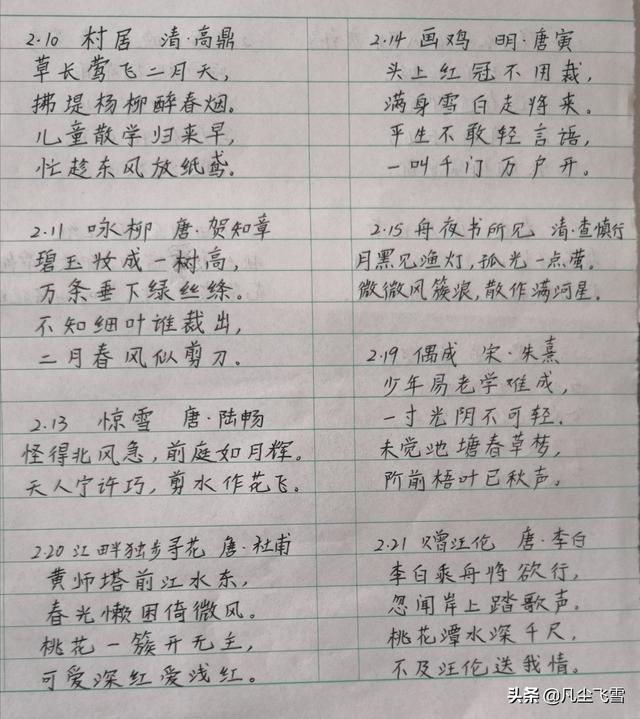 2.10 村居 清·高鼎
草长莺飞二月天,
拂堤杨柳醉春烟。
儿童散学归来早,
忙趁东风放纸鸢。
2.11 咏柳 唐·贺知章
碧玉妆成一树高,
万条垂下绿丝绦。
不知细叶谁裁出,
二月春风似剪刀。
2.13 惊雪 唐·陆畅
怪得北风急,前庭如月辉。
天人宁许巧,剪水作花飞。
2.20 江畔独步寻花 唐·杜甫
黄师塔前江水东,
春光懒困倚微风。
桃花一簇开无主,
可爱深红爱浅红。
2.14 画鸡 明·唐寅
头上红冠不用裁,
满身雪白走将来。
平生不敢轻言语,
一叫千门万户开。
2.15 舟夜书所见 清·查慎行
月黑见渔灯,孤光一点萤。
微微风簇浪,散作满河星。
2.19 偶成 宋·朱熹
少年易老学难成,
一寸光阴不可轻.
未觉池塘春草梦,
阶前梧叶已秋声。
2.21 赠汪伦 唐·李白
李白乘舟将欲行,
忽闻岸上踏歌声。
桃花潭水深千尺,
不及汪伦送我情。
头条@凡尘飞雪